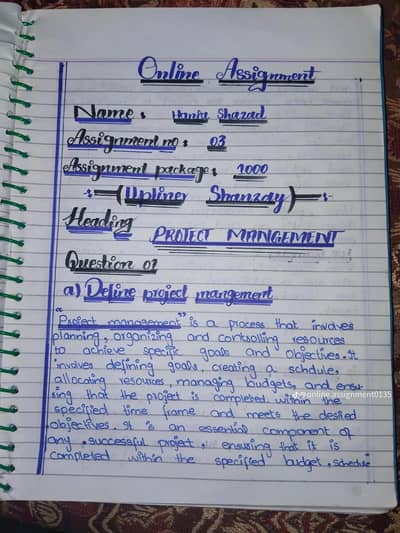 Online Assignment
Name : Hania Shazad
Assignment no : 03
Assignment package : 1000
(Upliner Shanzay)
Heading
PROJECT MANGEMENT
Question 01
a) Define project mangement
"Project management" is a process that involves
planning, organizing and controlling resources
to achieve specific goals and objectives. It
involves defining goals, creating a schdule,
allocating resources, managing budgets, and ensu
sing that the project is completed within the
specified time frame and meets the desired
objectives. It is an essential component of
any successful project, ensuring that it is
completed within the specified budget, schedule
@online.assignment0135